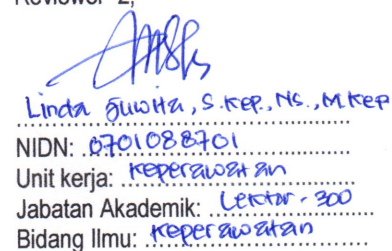 Reviewer 2,
Linda Juwita, S.Kep., Ns., M.Kep
NIDN: 0701088701
Unit kerja: Keperawatan
Jabatan Akademik: Lektor - 300
Bidang Ilmu: Keperawatan